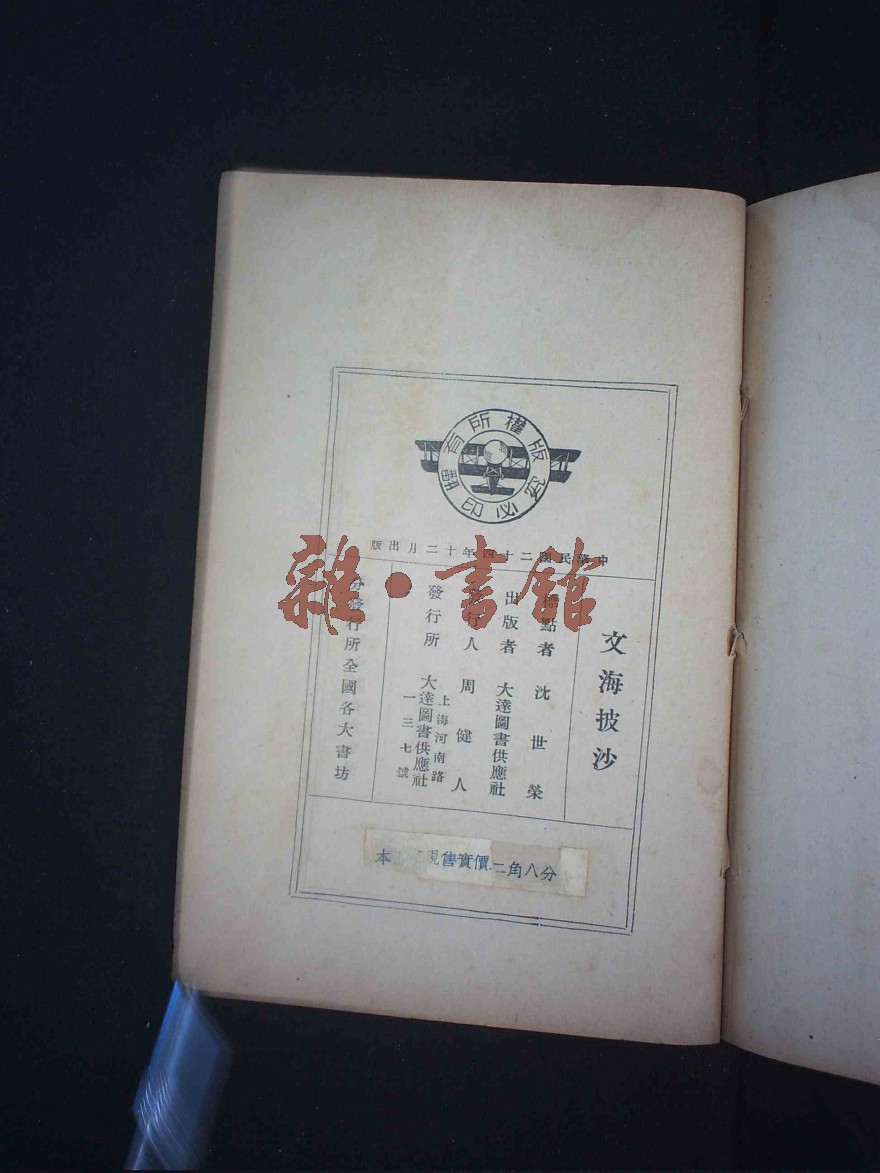 版權所有
翻印必究
中華民國二十四年十二月出版
文海披沙
標點者 沈世榮
出版者 大達圖書供應社
發行人 周健人
發行所 大達圖書供應社
上海河南路
一三七號
分發行所全國各大書坊
本 現售實價二角八分
雜·書館